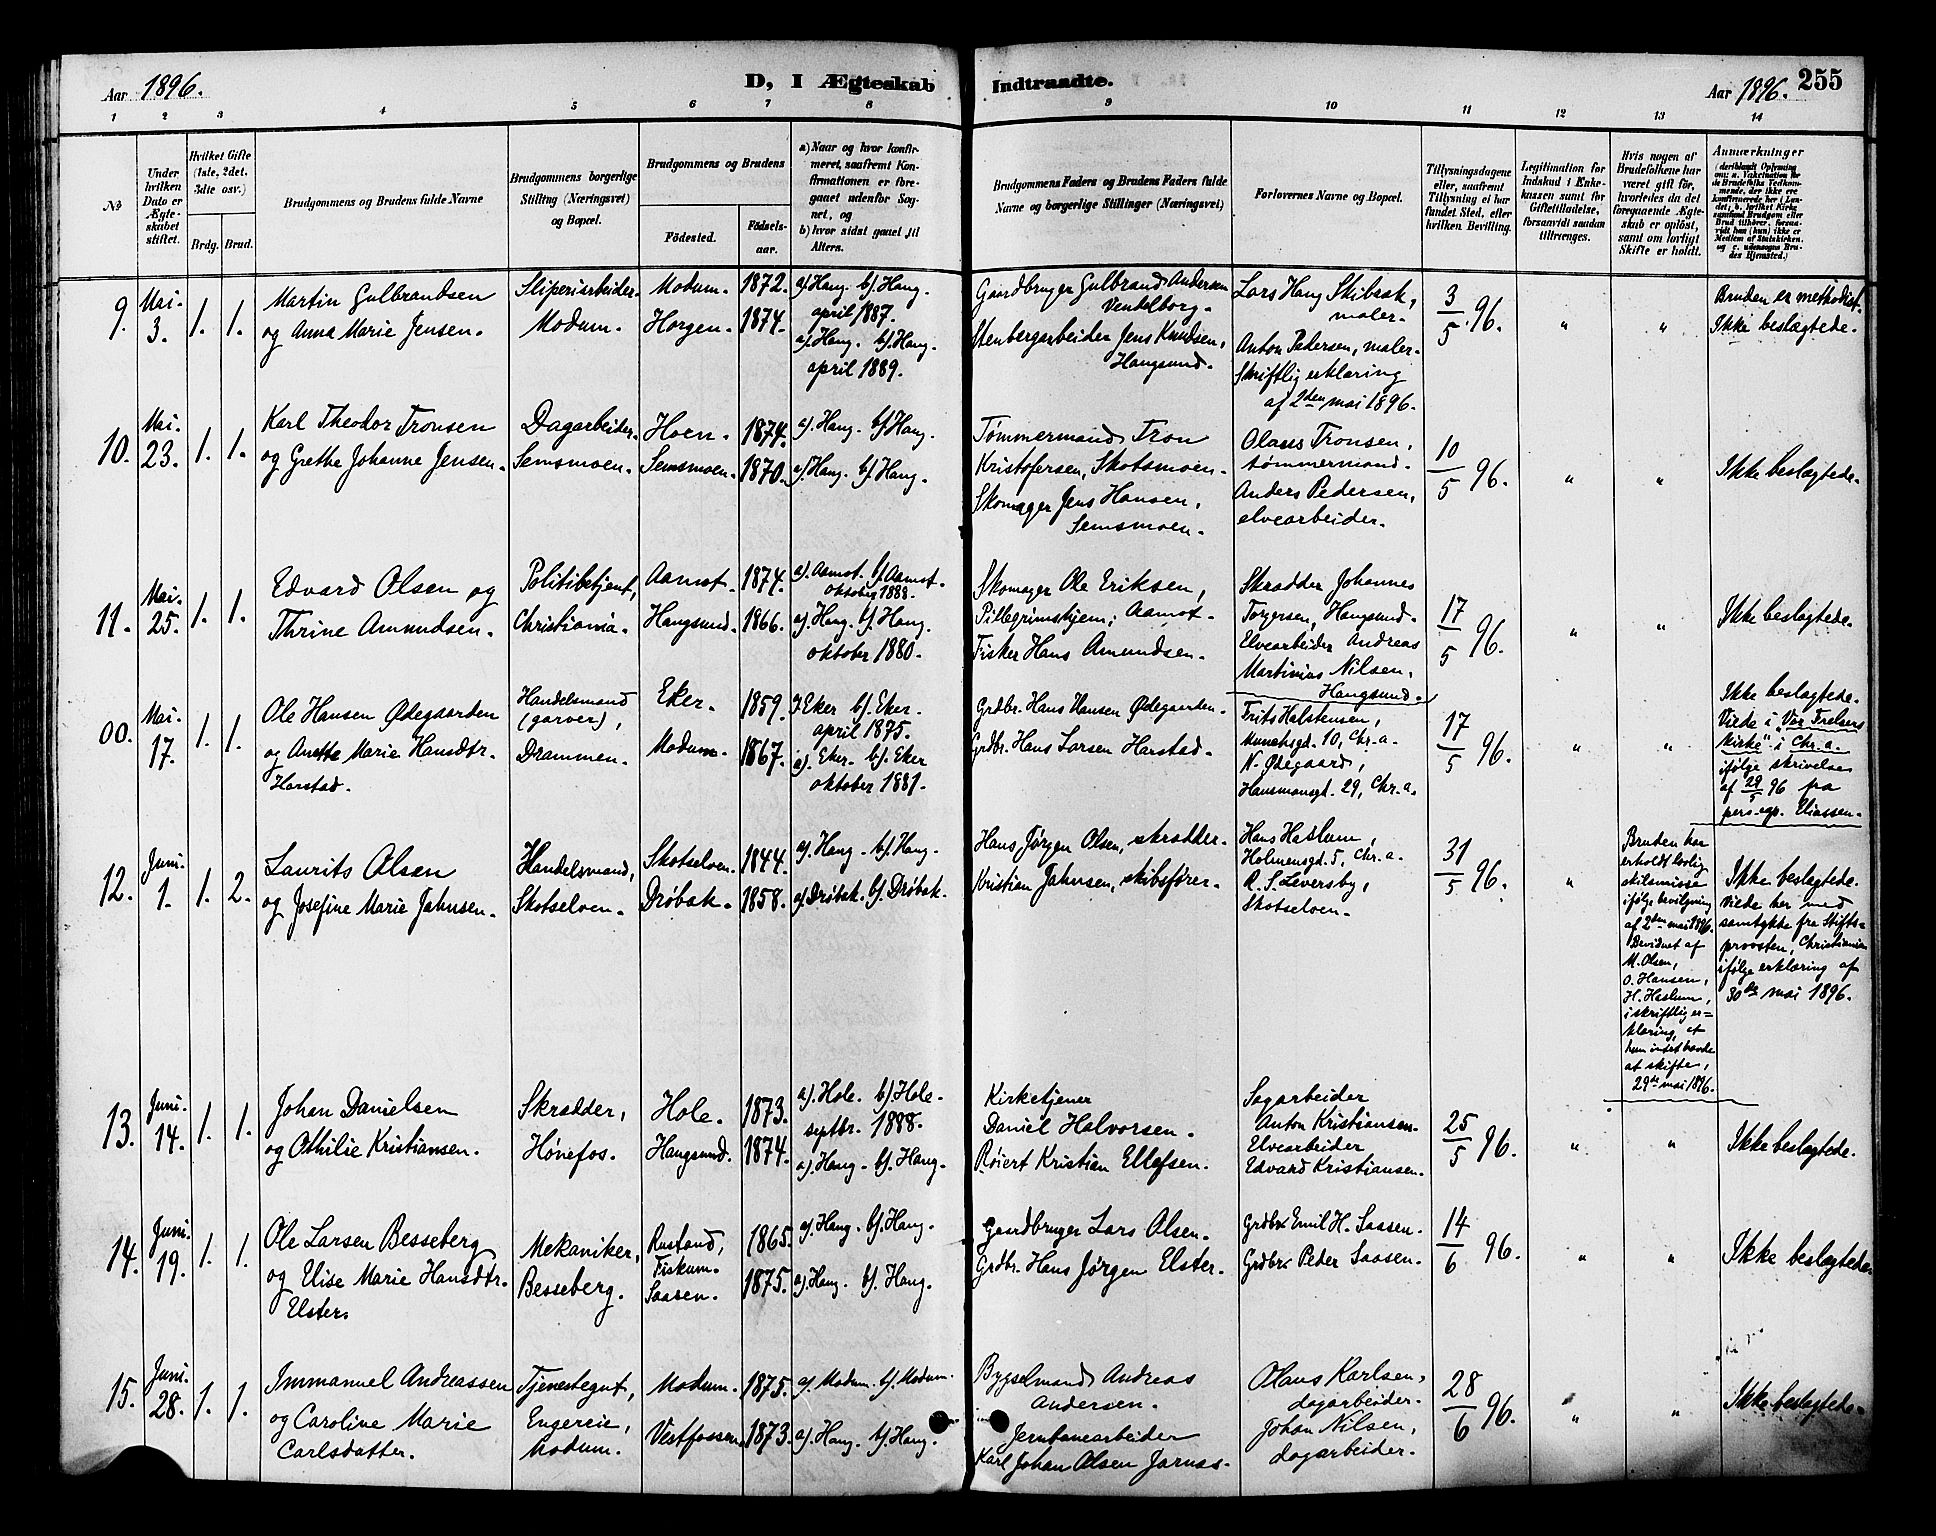 Aar 1896.
D, I Ægteskab Indtraadte.
Aar 1896. 255
1 2 3 4 5 6 7 8 9 10 11 12 13 14
№
Under hvilken Dato er Ægteskabet stiftet.
Hvilket Gifte (1ste, 2det, 3die osv.)
Brdg. Brud.
Brudgommens og Brudens fulde Navne
Brudgommens borgerlige Stilling (Næringsvei) og Bopæl.
Brudgommens og Brudens
Födested. Födselsaar.
a) Naar og hvor konfirmeret, saafremt Konfirmationen er foregaaet udenfor Sognet, og
b) hvor sidst gaaet til Alters.
Brudgommens Faders og Brudens Faders fulde Navne og borgerlige Stillinger (Næringsvei)
Forlovernes Navne og Bopæl.
Tillysningsdagene eller, saafremt Tillysning ei har fundet Sted, efter hvilken Bevilling.
Legitimation for Indskud i Enkekassen samt for Giftetilladelse, forsaavidt saadan tiltrænges.
Hvis nogen af Brudefolkene har været gift før, hvorledes da det foregaaende Ægteskab er opløst, samt om lovligt Skifte er holdt.
Anmærkninger
9. Mai. 3. 1. 1.
Martin Gulbrandsen
og Anna Marie Jensen.
Sliperiarbeider.
Modum.
Modum. 1872.
Horgen. 1874.
a). Haug. b). Haug.
april 1887.
a). Haug. b). Haug.
april 1889.
Gaardbruger Gulbrand Andersen
Vendelborg.
Stenbergarbeider Jens Knudsen,
Haugsund.
Lars Haug Skibrak,
maler.
Anton Pedersen, maler.
Skriftlig erklæring
af 2den mai 1896.
3/5 96.
" "
Bruden er methodist.
Ikke beslægtede.
10. Mai. 23. 1. 1.
Karl Theodor Tronsen
og Grethe Johanne Jensen.
Dagarbeider.
Semsmoen.
Hoen. 1874.
Semsmoen. 1870.
a). Haug. b). Haug.
a). Haug. b). Haug.
Tømmermand Tron
Kristofersen, Skotsmoen.
Skomager Jens Hansen,
Semsmoen.
Olaus Tronsen,
tømmermand.
Anders Pedersen,
elvearbeider.
10/5 96.
" "
Ikke beslægtede.
11. Mai. 25. 1. 1.
Edvard Olsen og
Thrine Amundsen.
Politibetjent,
Christiania.
Aamot. 1874.
Haugsund. 1866.
a). Aamot. b). Aamot.
oktober 1888.
a). Haug. b). Haug.
oktober 1880.
Skomager Ole Eriksen,
Pillegrimshjem, Aamot.
Fisker Hans Amundsen.
Skrædder Johannes
Torgersen, Haugsund.
Elvearbeider Andreas
Martinius Nilsen,
Haugsund.
17/5 96.
" "
Ikke beslægtede.
00. Mai. 17. 1. 1.
Ole Hansen Ødegaarden
og Anette Marie Hansdtr.
Harstad.
Handelsmand
(garver),
Drammen.
Eker. 1859.
Modum. 1867.
Eker b). Eker.
april 1875.
a). Eker. b). Eker
oktober 1881.
Grdbr. Hans Hansen Ødegaarden.
Grdbr. Hans Larsen Harstad.
Frits Halstensen,
Munchsgd. 10, Chr.a.
N. Ødegaard,
Hausmansgd. 29, Chr.a.
17/5 96.
" "
Ikke beslægtede.
Viede i "Vor Frelsers
kirke" i Chr.a.
ifølge skrivelse
af 29/5 96 fra
pers.cap. Eliassen.
12. Juni. 1. 1. 2.
Laurits Olsen
og Josefine Marie Jahnsen.
Handelsmand,
Skotselven.
Skotselven. 1844.
Drøbak. 1858.
a). Haug. b). Haug.
a). Drøbak. b). Drøbak.
Hans Jørgen Olsen, skrædder.
Kristian Jahnsen, skibsfører.
Hans Haslum,
Holmensgd. 5, Chr.a.
R. S. Leversby,
Skotselven.
31/5 96.
"
Bruden har
erholdt lovlig
skilsmisse
ifølge bevilgning
af 2den mai 1896.
Bevidnet af
M. Olsen,
O. Hansen,
H. Haslum,
i skriftlig er=
klæring, at
hun intet havde
at skifte,
29de mai 1896.
Ikke beslægtede.
Viede her med
samtykke fra Stifts=
provsten, Christiania
ifølge erklæring af
30te mai 1896.
13. Juni. 14. 1. 1.
Johan Danielsen
og Othilie Kristiansen.
Skrædder,
Hønefos.
Hole. 1873.
Haugsund. 1874.
a). Hole. b). Hole.
septbr. 1888.
a). Haug. b). Haug.
Kirketjener
Daniel Halvorsen.
Røiert Kristian Ellefsen.
Sagarbeider
Anton Kristiansen.
Elvearbeider
Edvard Kristiansen.
25/5 96.
" "
Ikke beslægtede.
14. Juni. 19. 1. 1.
Ole Larsen Besseberg
og Elise Marie Hansdtr.
Elster.
Mekaniker,
Besseberg.
Rustand,
Fiskum. 1865.
Saasen. 1875.
a). Haug. b). Haug.
a). Haug. b). Haug.
Gaardbruger Lars Olsen.
Grdbr. Hans Jørgen Elster.
Grdbr. Emil H. Saasen.
Grdbr. Peder Saasen.
14/6 96.
" "
Ikke beslægtede.
15. Juni. 28. 1. 1.
Immanuel Andreassen
og Caroline Marie
Carlsdatter.
Tjenestegut,
Engereie,
Modum.
Modum. 1875.
Vestfossen 1873.
a). Modum. b). Modum.
a). Haug. b). Haug.
Bygselmand Andreas
Andersen.
Jernbanearbeider
Karl Johan Olsen Jarnas.
Olaus Karlsen,
dagarbeider.
Johan Nilsen,
dagarbeider.
28/6 96.
" "
Ikke beslægtede.